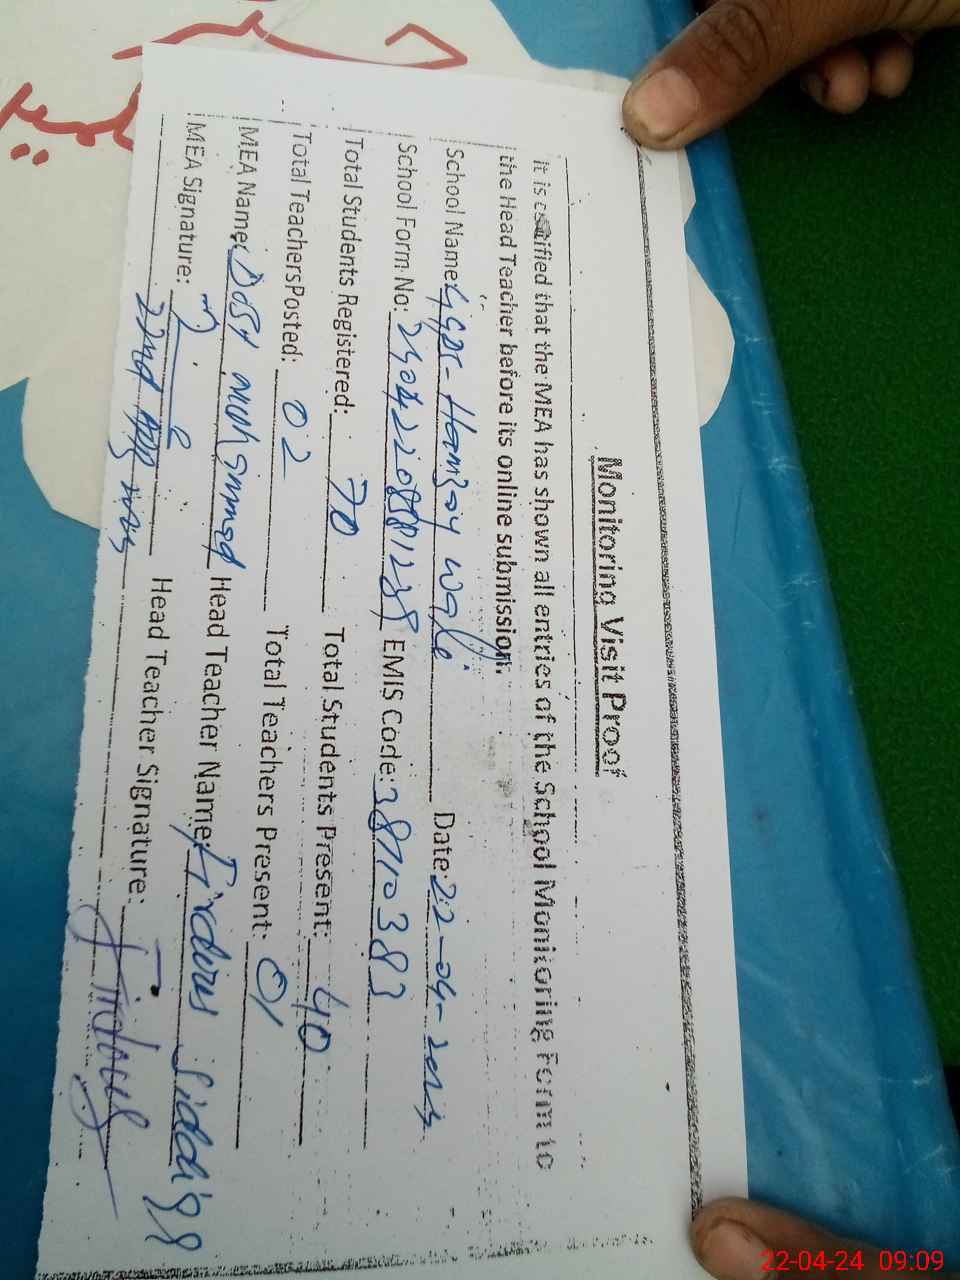 Monitoring Visit Proof
It is certified that the MEA has shown all entries of the School Monitoring Form to
the Head Teacher before its online submission.
School Name: GGPS- Hamzay Date: 22-04-
School Form No: EMIS Code: 38710383
Total Students Registered: 70 Total Students Present: 40
Total Teachers Posted: 02 Total Teachers Present: 01
MEA Name: Dost Muhammad Head Teacher Name: Firdous Siddiqa
MEA Signature: Head Teacher Signature: Firdous
22nd
22-04-24 09:09